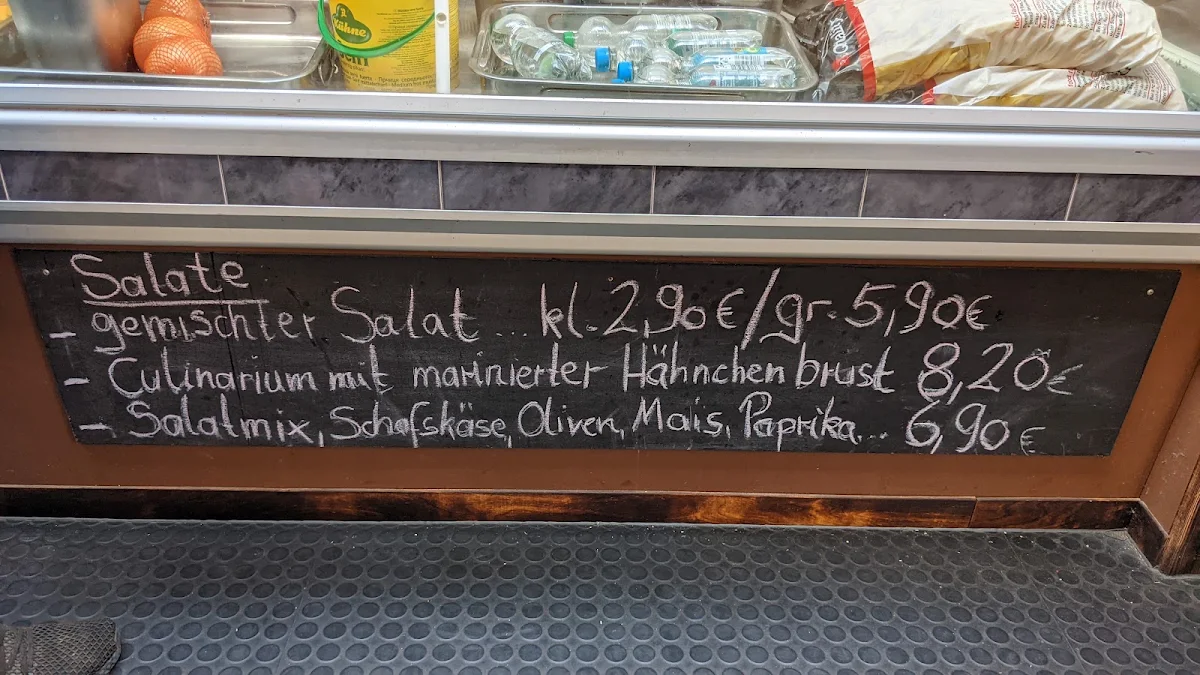 Kühne
Salate
- gemischter Salat ... kl. 2,90€/gr. 5,90€
- Culinarium mit marinierter Hähnchenbrust 8,20€
- Salatmix, Schafskäse, Oliven, Mais, Paprika... 6,90€